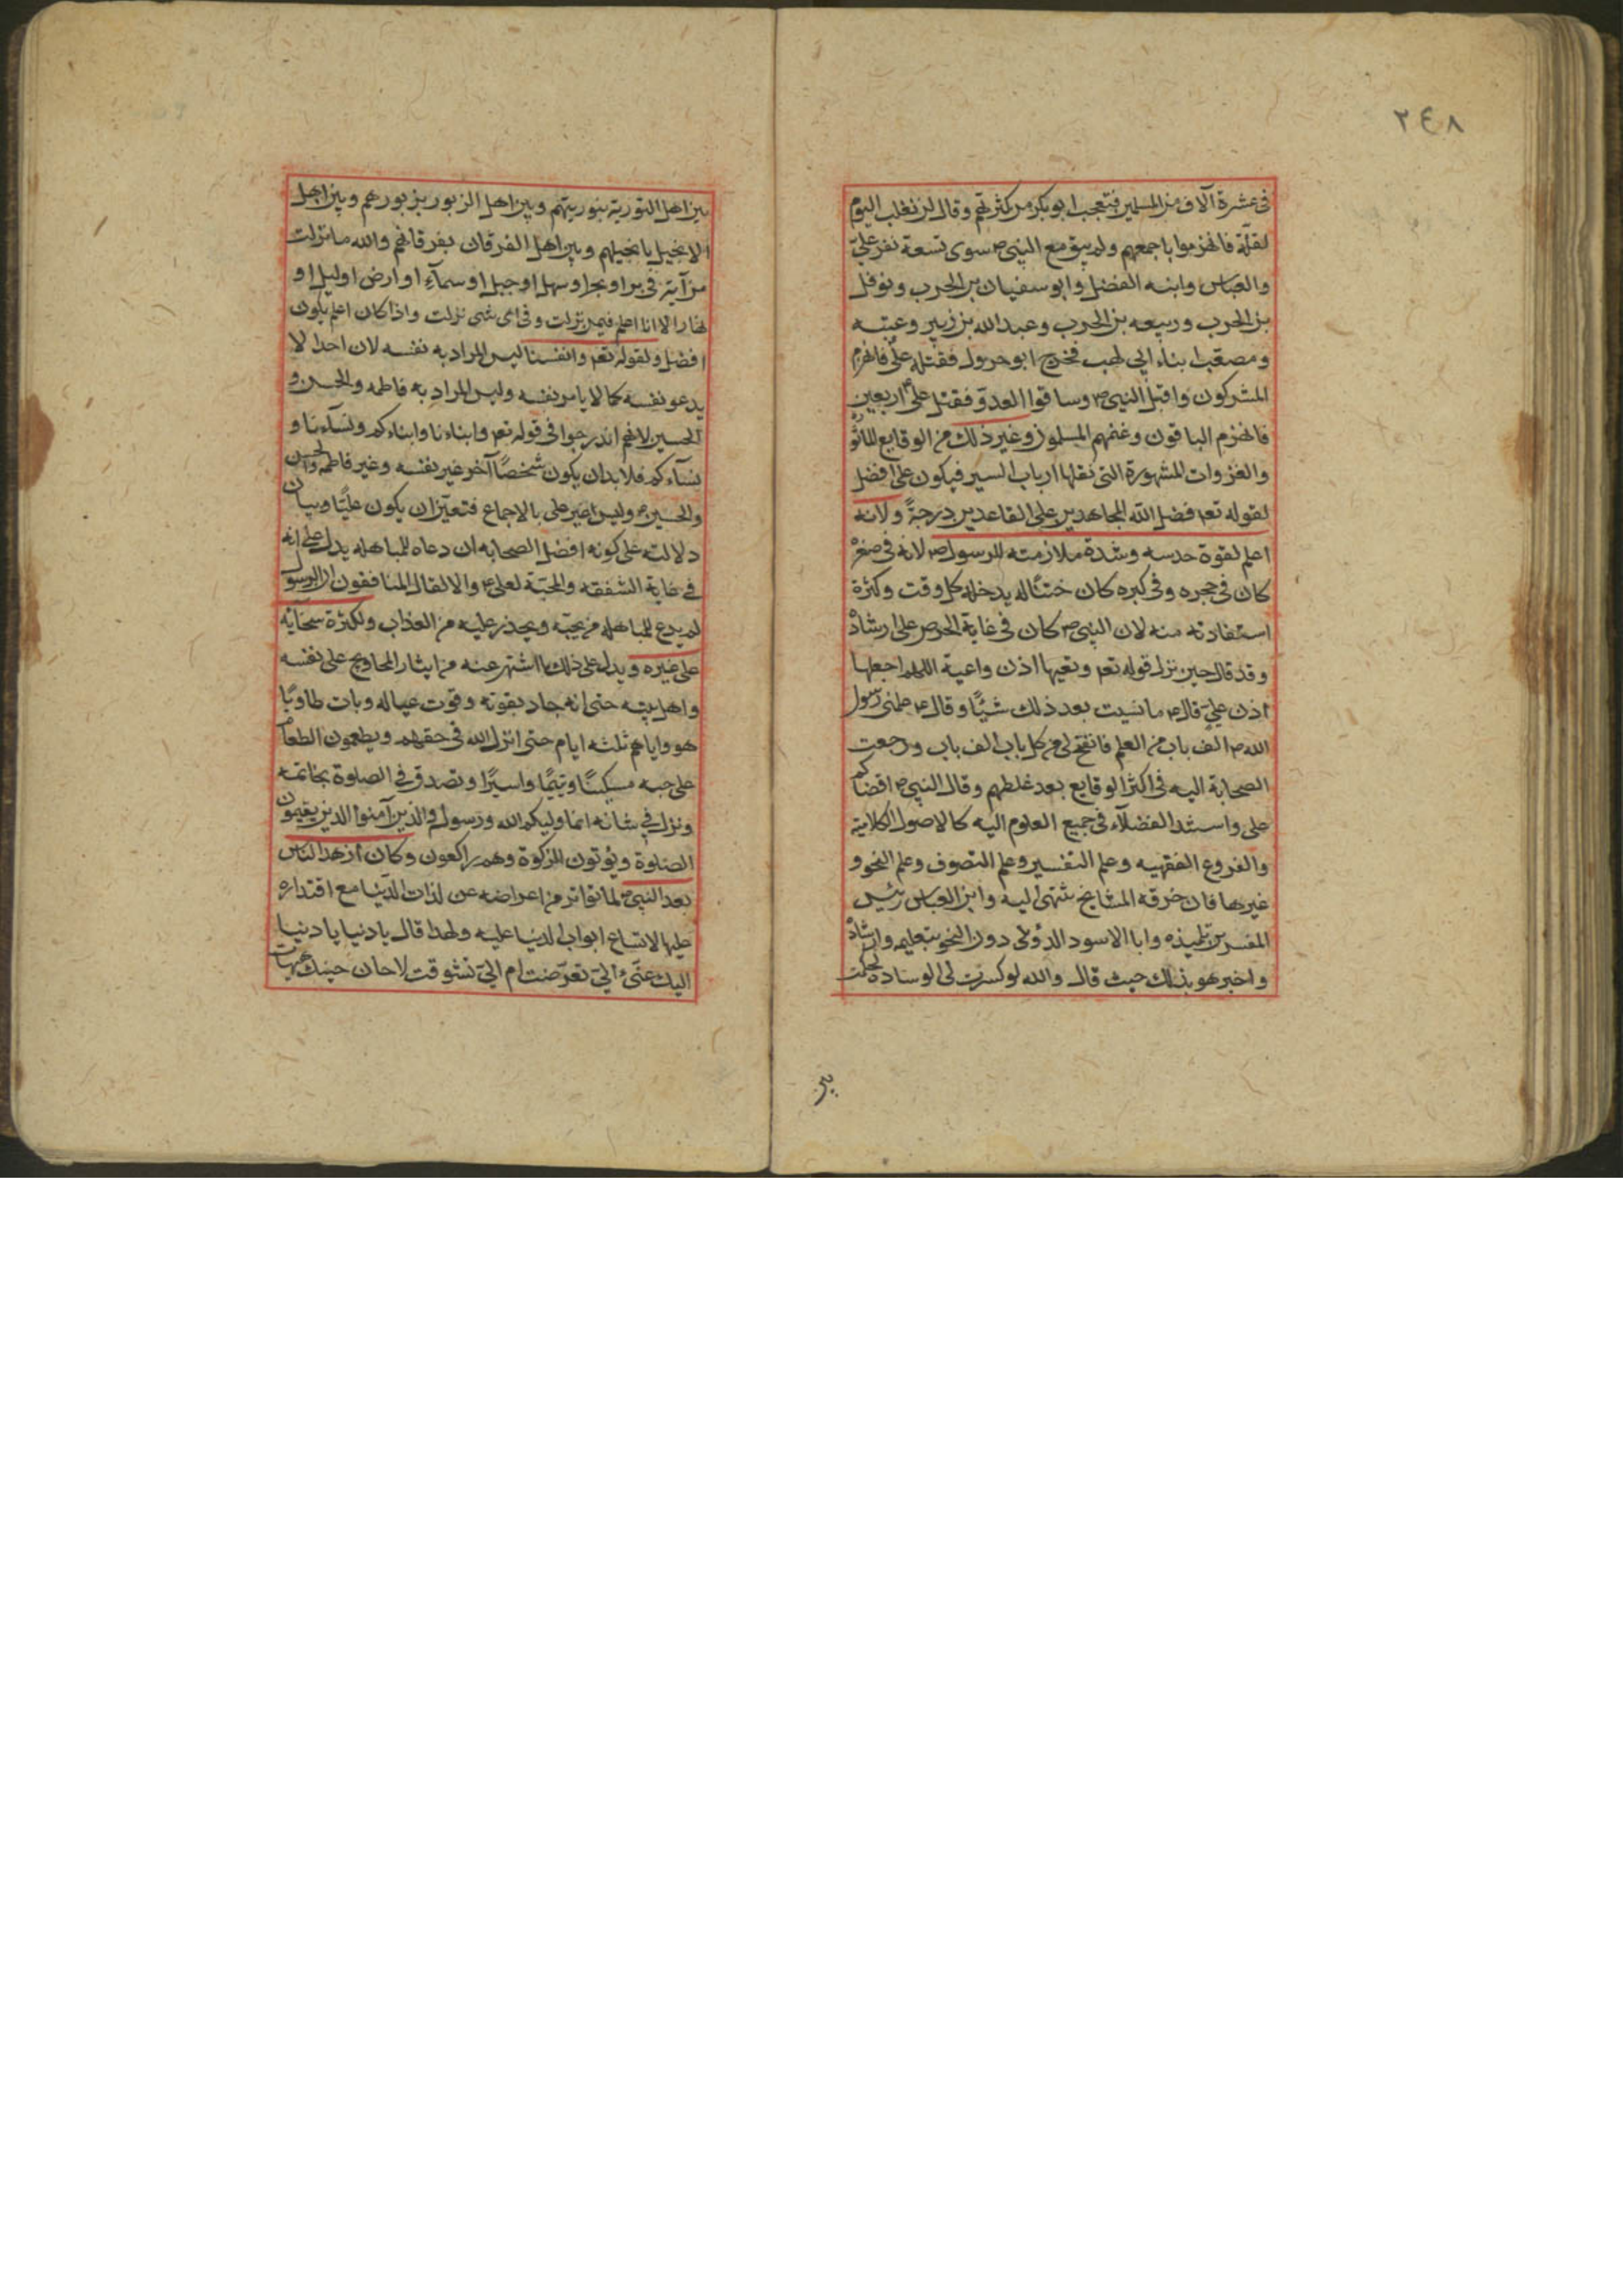 ٢٤٨
فى عشرة آلاف من المسلمين فتعجب ابو بكر من كثرتهم وقال لن نغلب اليوم
لقلّة فانهزموا باجمعهم ولم يبق مع النبى ص سوى تسعة نفر علىّ
والعباس وابنه الفضل وابو سفيان بن الحرب ونوفل
بن الحرب وربيعه بن الحرب وعبد الله بن زبير وعتبه
ومصعب ابناء ابى لهب فخرج ابو جرول فقتله علىّ فانهزم
المشركون واقبل النبى ص وساقوا العدوّ فقتل على اربعين
فانهزم الباقون وغنمهم المسلمون وغير ذلك من الوقايع الماثو
والغزوات المشهورة التى نقلها ارباب السير فيكون على افضل
لقوله تعم فضل الله المجاهدين على القاعدين درجةً ولانه
اعلم لقوة حدسه وشدة ملازمته للرسول ص لانه فى صغره
كان فى حجره وفى كبره كان ختنًا له يدخله كل وقت وكثرة
استفادته منه لان النبى ص كان فى غاية الحرص على ارشاده
وقد قال حين نزل قوله تعم وتعيها اذن واعية اللهم اجعلها
اذن علىّ قال ع ما نسيت بعد ذلك شيًا وقال ع علمنى رسول
الله ص الف باب من العلم فانفتح لى من كل باب الف باب ورجعت
الصحابة اليه فى اكثر الوقايع بعد غلطهم وقال النبى ص اقضاكم
على واستند الفضلآء فى جميع العلوم اليه كالاصول الكلامية
والفروع الفقهيه وعلم التفسير وعلم التصوف وعلم النحو و
غيرها فان خرقه المشايخ تنتهى اليه وابن العباس رئيس
المفسرين تلميذه وابا الاسود الدؤلى دون النحو بتعليمه وارشاده
واخبر هو بذلك حيث قال والله لو كسرت لى الوسادة لحكمت
بين
بين اهل التورية بتوريتهم وبين اهل الزبور بزبورهم وبين اهل
الانجيل بانجيلهم وبين اهل الفرقان بفرقانهم والله ما نزلت
من آية فى بر او بحر او سهل او جبل او سمآء او ارض او ليل او
نهار الا انا اعلم فيمن نزلت وفى اى شى نزلت واذا كان اعلم يكون
افضل ولقوله تعم وانفسنا ليس المراد به نفسه لان احدا لا
يدعو نفسه كما لا يامر نفسه وليس المراد به فاطمه والحسن و
الحسين لانهم اندرجوا فى قوله تعم وابناءنا وابناءكم ونسآءنا و
نسآءكم فلا بد ان يكون شخصًا آخر غير نفسه وغير فاطمه والحسن
والحسين ع وليس غير على بالاجماع فتعيّن ان يكون عليًا وبيان
دلالته على كونه افضل الصحابه ان دعاه للمباهله يدل على انه
فى غاية الشفقه والمحبّة لعلى ع والا لقال المنافقون ان الرسول
لم يدع للمباهله من يحبّه ويحذر عليه من العذاب ولكثرة سخآيه
على غيره ويدل على ذلك ما اشتهر عنه من ايثار المحاويج على نفسه
واهل بيته حتى انه جاد بقوته وقوت عياله وبات طاويًا
هو واياهم ثلثه ايام حتى انزل الله فى حقهم ويطعمون الطعام
على حبه مسكينًا ويتيمًا واسيرًا وتصدق فى الصلوة بخاتمه
ونزل فى شانه انما وليكم الله ورسوله والذين آمنوا الذين يقيمون
الصلوة ويؤتون الزكوة وهم راكعون وكان ازهد الناس
بعد النبى ص لما تواتر من اعراضه عن لذات الدّنيا مع اقتداره
عليها لاتساع ابواب الدنيا عليه ولهذا قال يا دنيا يا دنيا
اليك عنّى الىّ تعرّضت ام الىّ تشوقت لا حان حينك هيهات